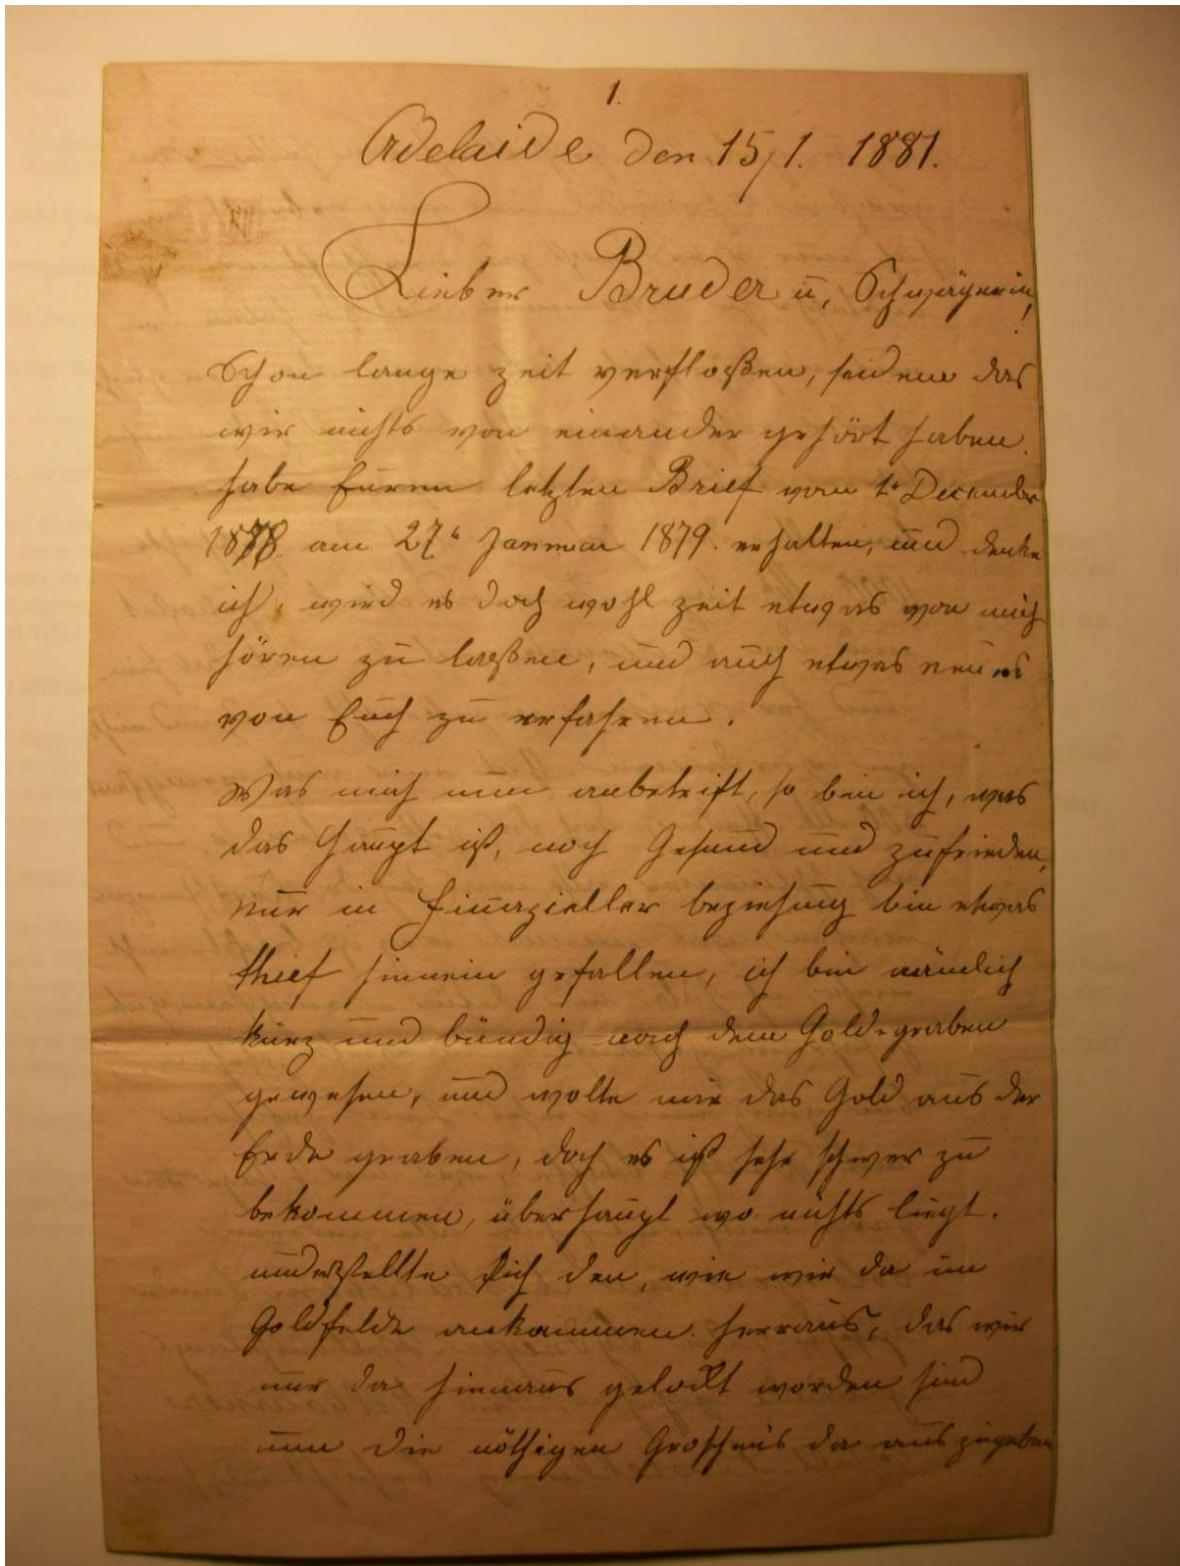 1.
Adelaide den 15/1. 1881.
Lieber Bruder u, Schwägerin,!
Schon lange zeit verfloßen, seidem das
wir nichts von einander gehört haben.
habe Euren letzten Brief vom 1t December
1878. am 27t Januar 1879. erhalten, und denke
ich, wird es doch wohl zeit etwas von mich
hören zu laßen, und auch etwas neues
von Euch zu erfahren.
Was mich nun anbetrift, so bin ich, was
das Haupt ist, noch Gesund und zufrieden,
nur in finazieller beziehung bin etwas
thief hinnein gefallen, ich bin nämlich
kurz und bündig nach dem Goldegraben
gewesen, und wolte mir das Gold aus der
Erde graben, doch es ist sehr schwer zu
bekommen, überhaupt wo nichts liegt.
und stellte sich den, wie wir da im
Goldfelde ankammen herraus, das wir
nur da hinnaus gelockt worden sind
um die nöthigen Groschens da auszugeben